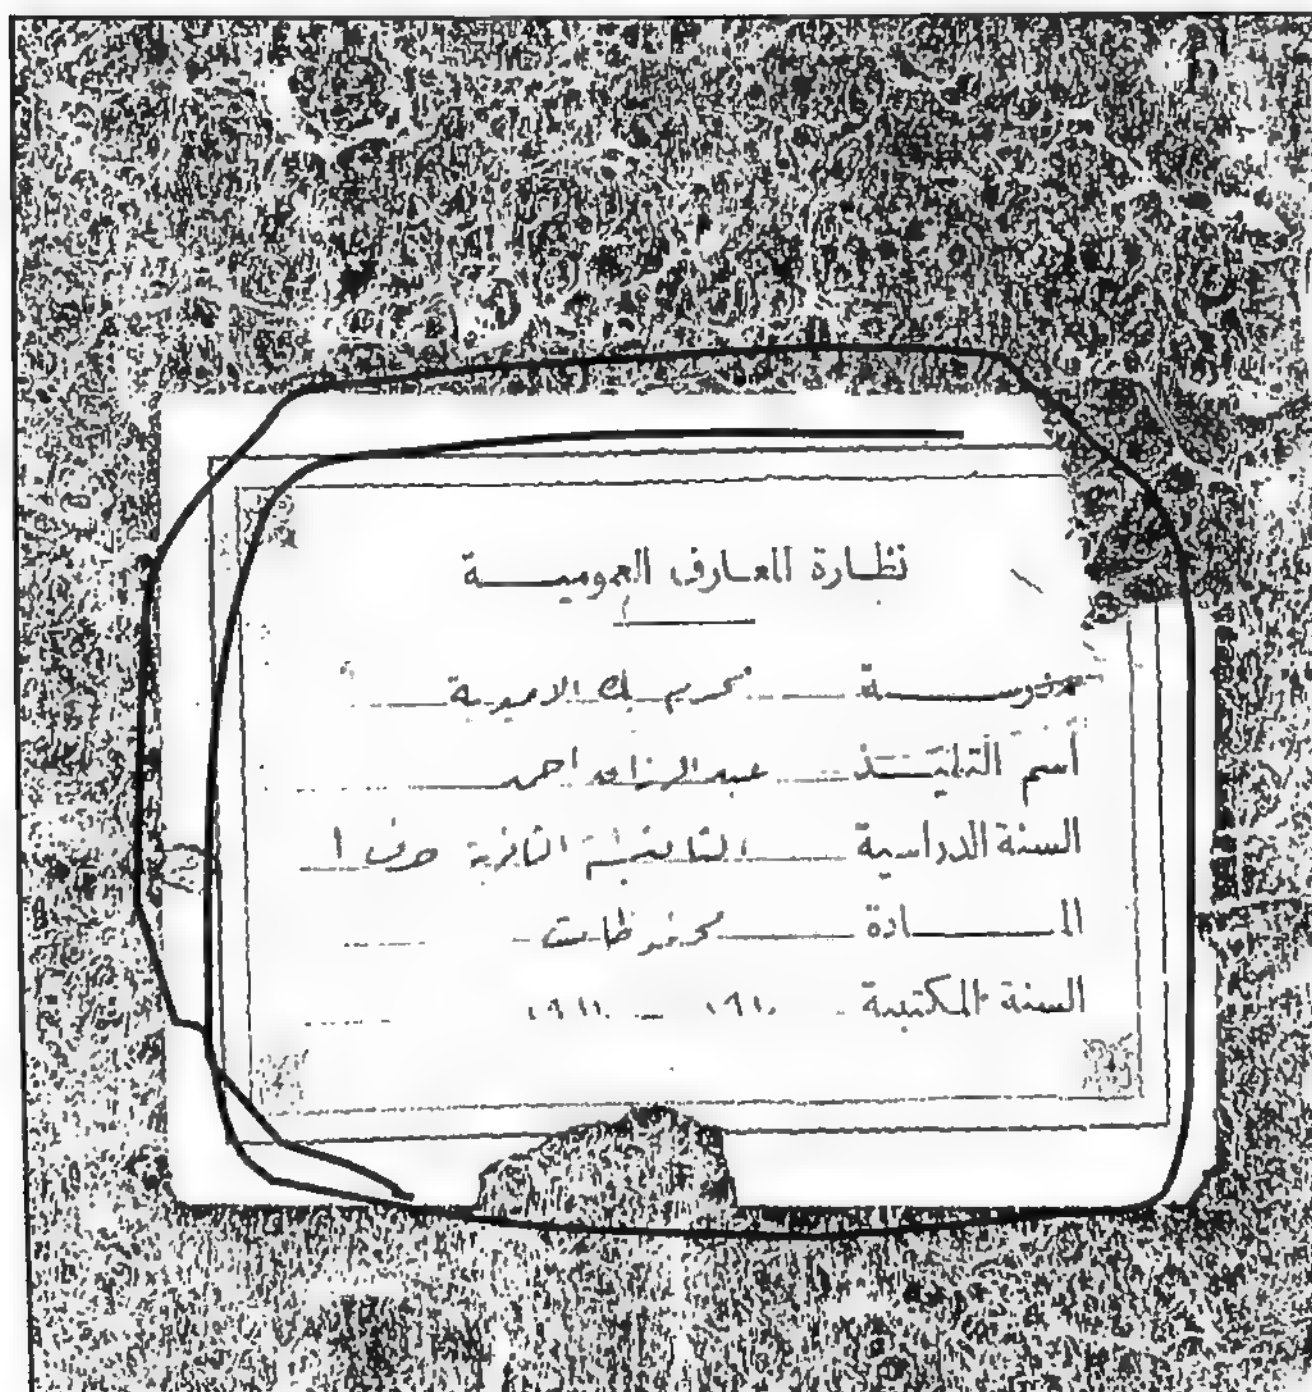 نظارة المعارف العمومية
مدرسة محرم بك الاميرية
اسم التلميذ عبد احمد
السنة الدراسية الثانوية
المادة محفوظات
السنة المكتبية ١٩١٠ — ١٩١١